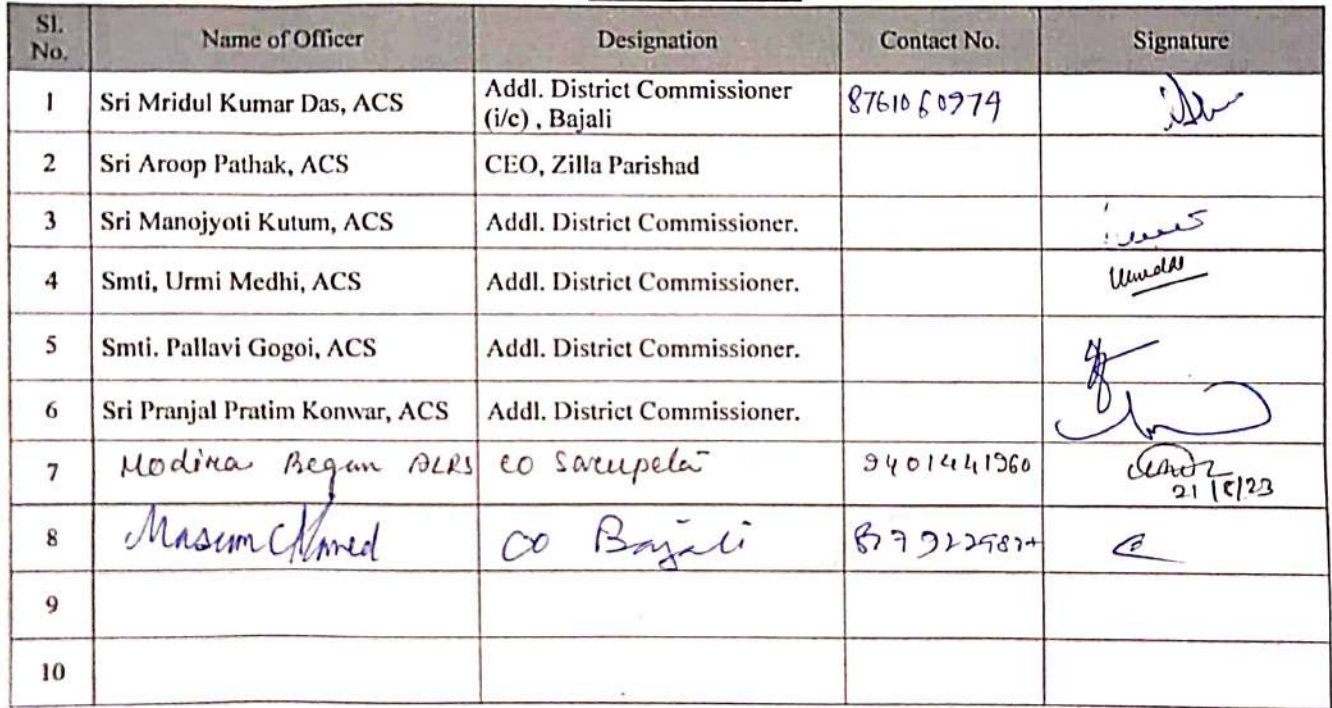 Sl. No. Name of Officer Designation Contact No. Signature
1 Sri Mridul Kumar Das, ACS Addl. District Commissioner (i/c) , Bajali 8761060974
2 Sri Aroop Pathak, ACS CEO, Zilla Parishad
3 Sri Manojyoti Kutum, ACS Addl. District Commissioner.
4 Smti, Urmi Medhi, ACS Addl. District Commissioner.
5 Smti. Pallavi Gogoi, ACS Addl. District Commissioner.
6 Sri Pranjal Pratim Konwar, ACS Addl. District Commissioner.
7 Begum ALRS CO 9401441960 21/8/23
8 Masum Ahmed CO Bajali
9
10